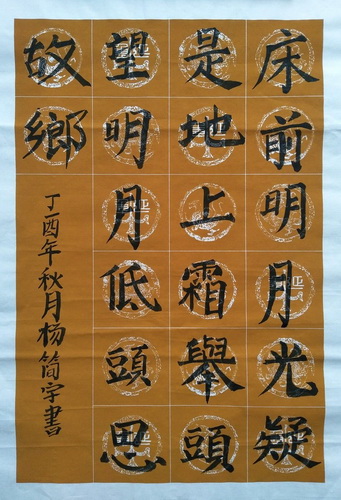 床前明月光疑
是地上霜舉頭
望明月低頭思
故鄉
丁酉年秋月杨简字書